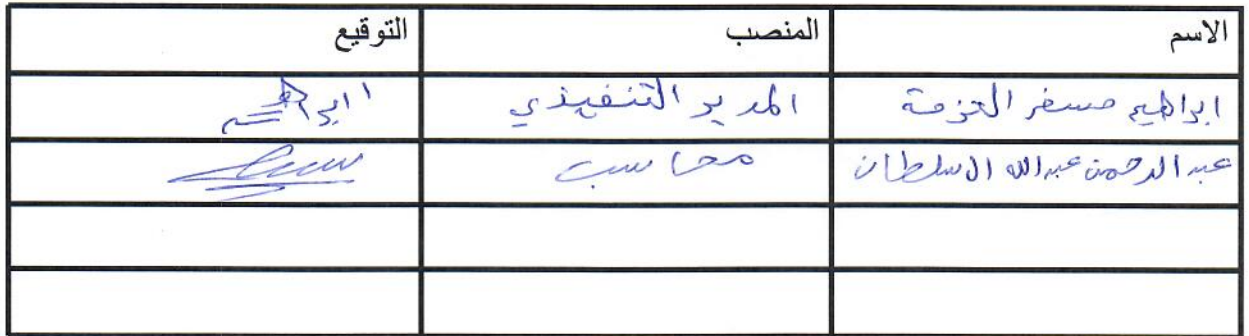 الاسم المنصب التوقيع
ابراهيم مسفر العزمة المدير التنفيذي ابراهيم
عبدالرحمن عبدالله ال سلطان محاسب